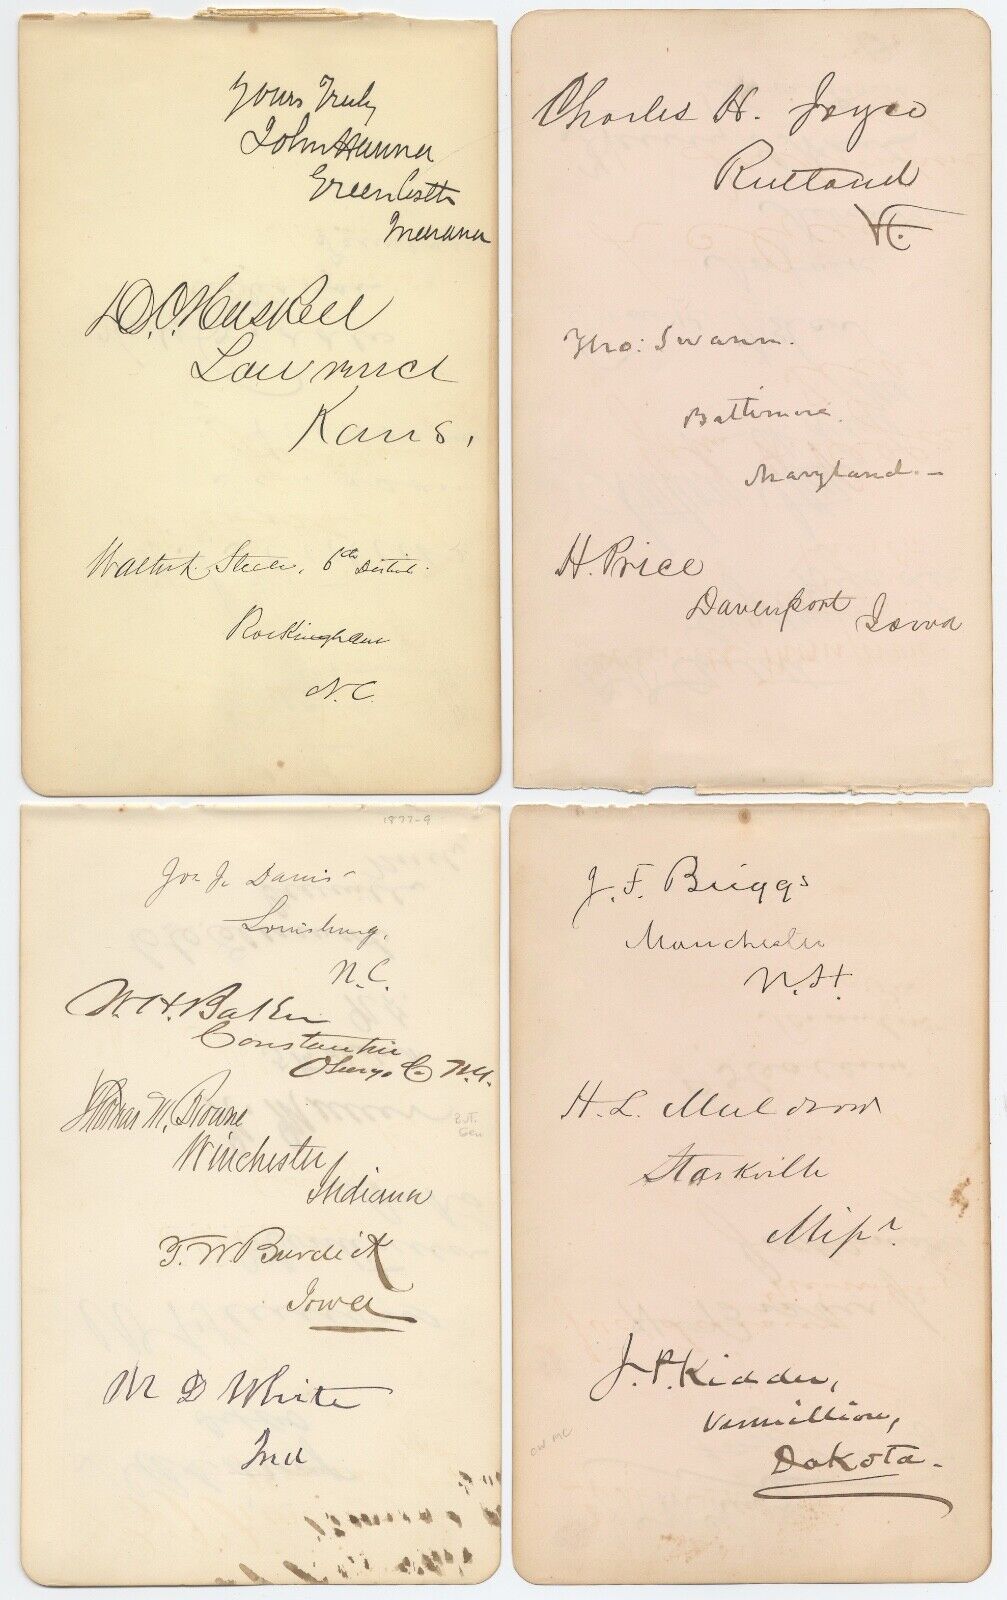 Yours Truly
John Hanna
Greencastle
Indiana
D.C. Haskell
Lawrence
Kans.
Walter L. Steele, 6th District.
Rockingham
N.C.
Charles H. Joyce
Rutland
Vt.
Tho: Swann.
Baltimore.
Maryland.—
H. Price
Davenport Iowa
1877-9
Jos J. Davis
Louisburg,
N.C.
W.H. Baker
Constantia
Oswego Co N.Y.
Thomas M. Browne
Bvt.
Gen
Winchester
Indiana
T. W. Burdick
Iowa
M D White
Ind
J. F. Briggs
Manchester
N.H.
H. L. Muldrow
Starkville
Missi.
J. P. Kidder,
Vermillion,
Dakota.
CW MC